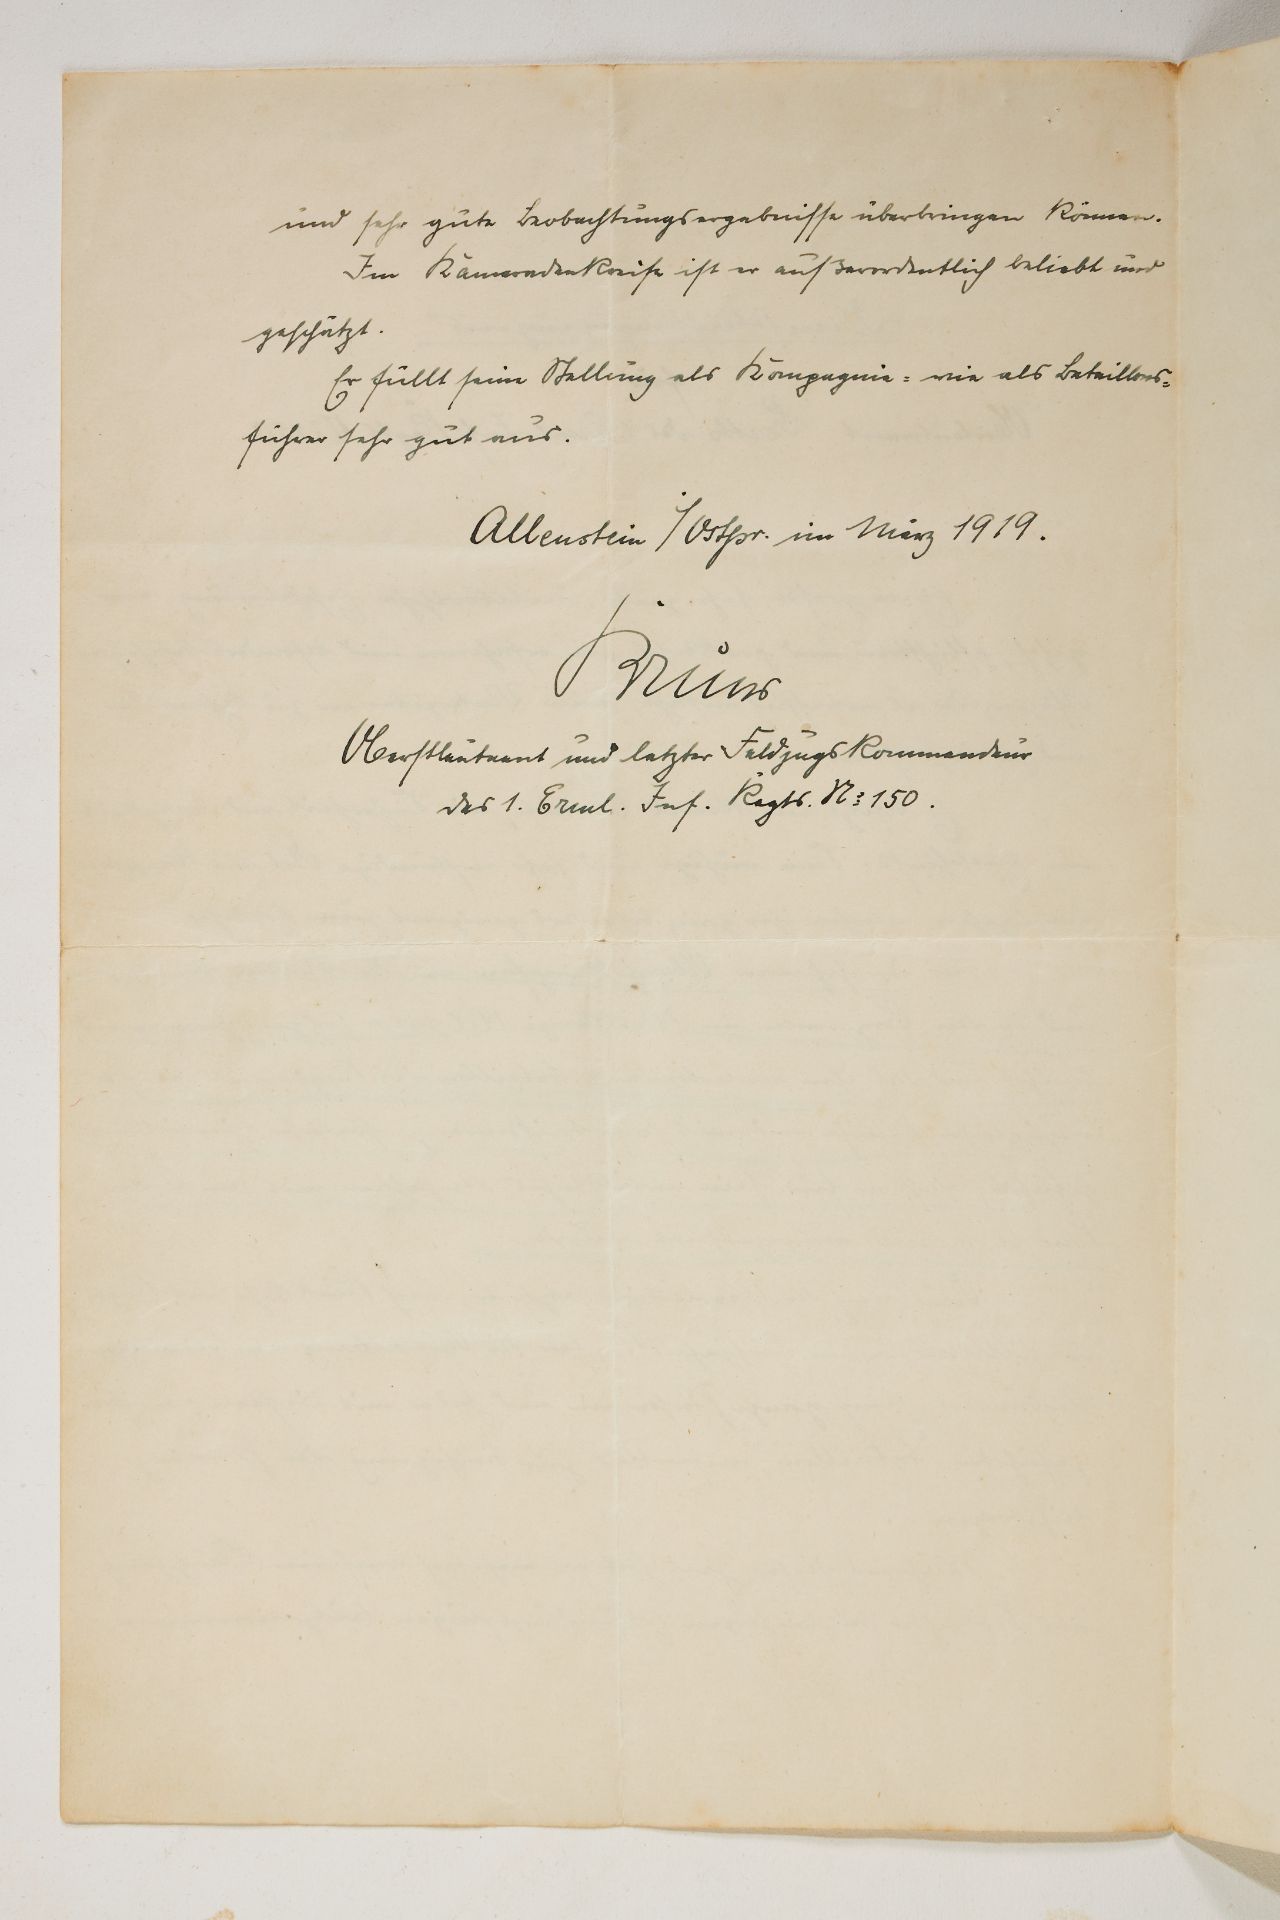 und sehr gute Beobachtungsergebnisse überbringen können.
Im Kameradenkreise ist er außerordentlich beliebt und
geschätzt.
Er füllt seine Stellung als Kompagnie= wie als Bataillons=
führer sehr gut aus.
Allenstein i/Ostpr. im März 1919.
Bruns
Oberstleutnant und letzter Feldzugskommandeur
des 1. Erml. Inf. Regts. No: 150.